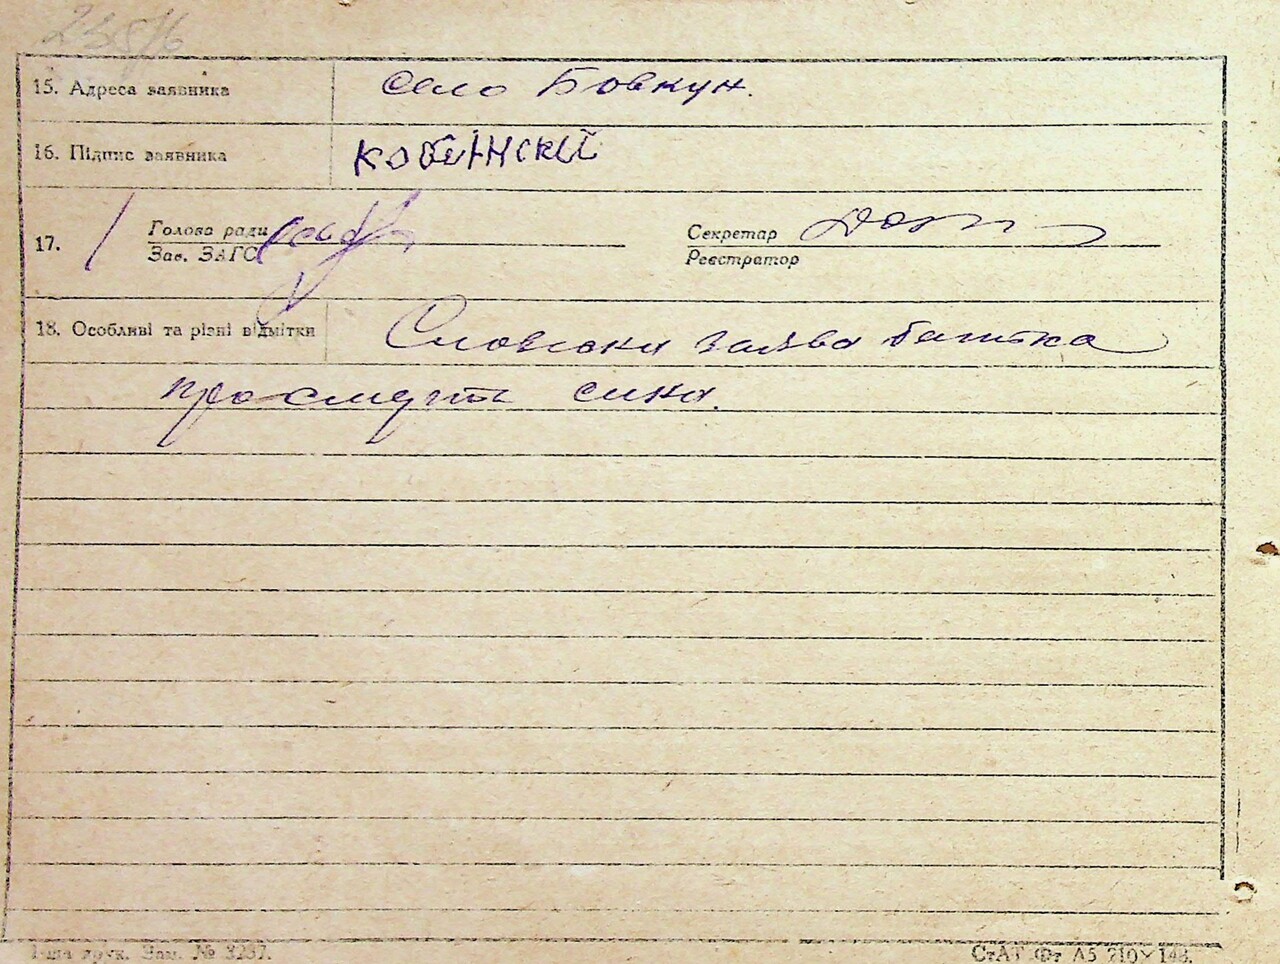 15. Адреса заявника Село Бовкун.
16. Підпис заявника
17. Голова ради Секретар
Зав. ЗАГС Реєстратор
18. Особливі та різні відмітки Словесна заява батька
про смерть сина.
друк. Зам. № 3237. СтАТ Фт А5 210×148.